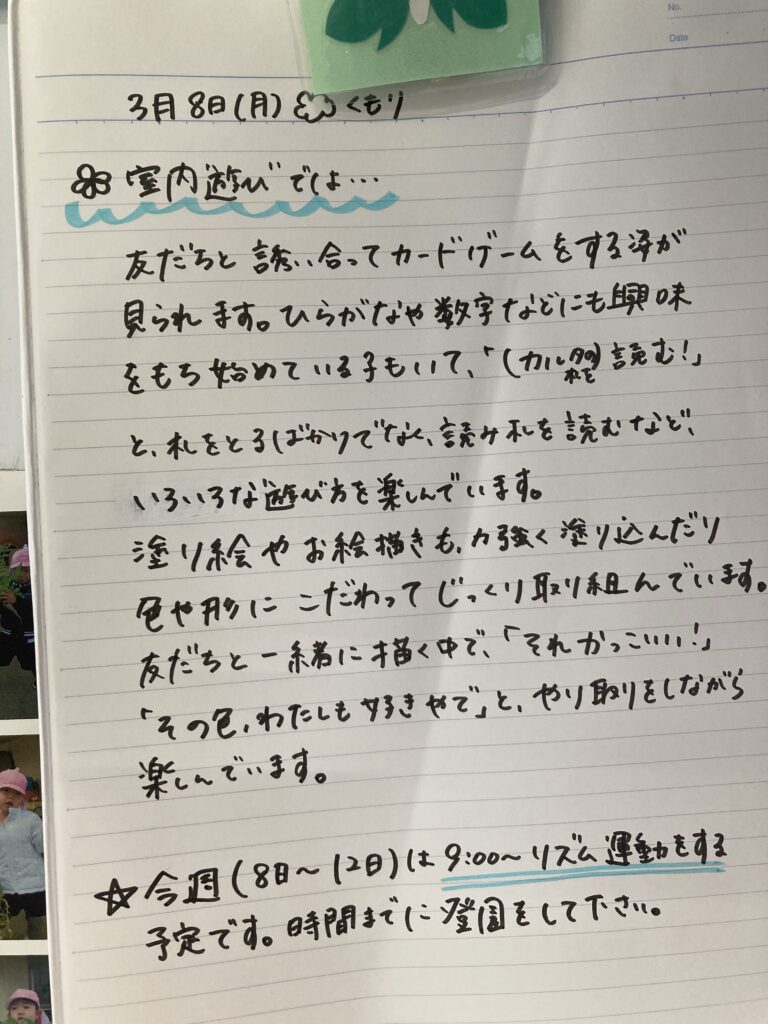 No.
Date
3月8日(月) くもり
室内遊びでは…
友だちと誘い合ってカードゲームをする姿が
見られます。ひらがなや数字などにも興味
をもち始めている子もいて、「(カルタの札を)読む!」
と、札をとるばかりでなく、読み札を読むなど、
いろいろな遊び方を楽しんでいます。
塗り絵やお絵描きも、力強く塗り込んだり
色や形にこだわってじっくり取り組んでいます。
友だちと一緒に描く中で、「それかっこいい!」
「その色、わたしも好きやで」と、やり取りをしながら
楽しんでいます。
☆今週(8日〜12日)は9:00〜リズム運動をする
予定です。時間までに登園をして下さい。